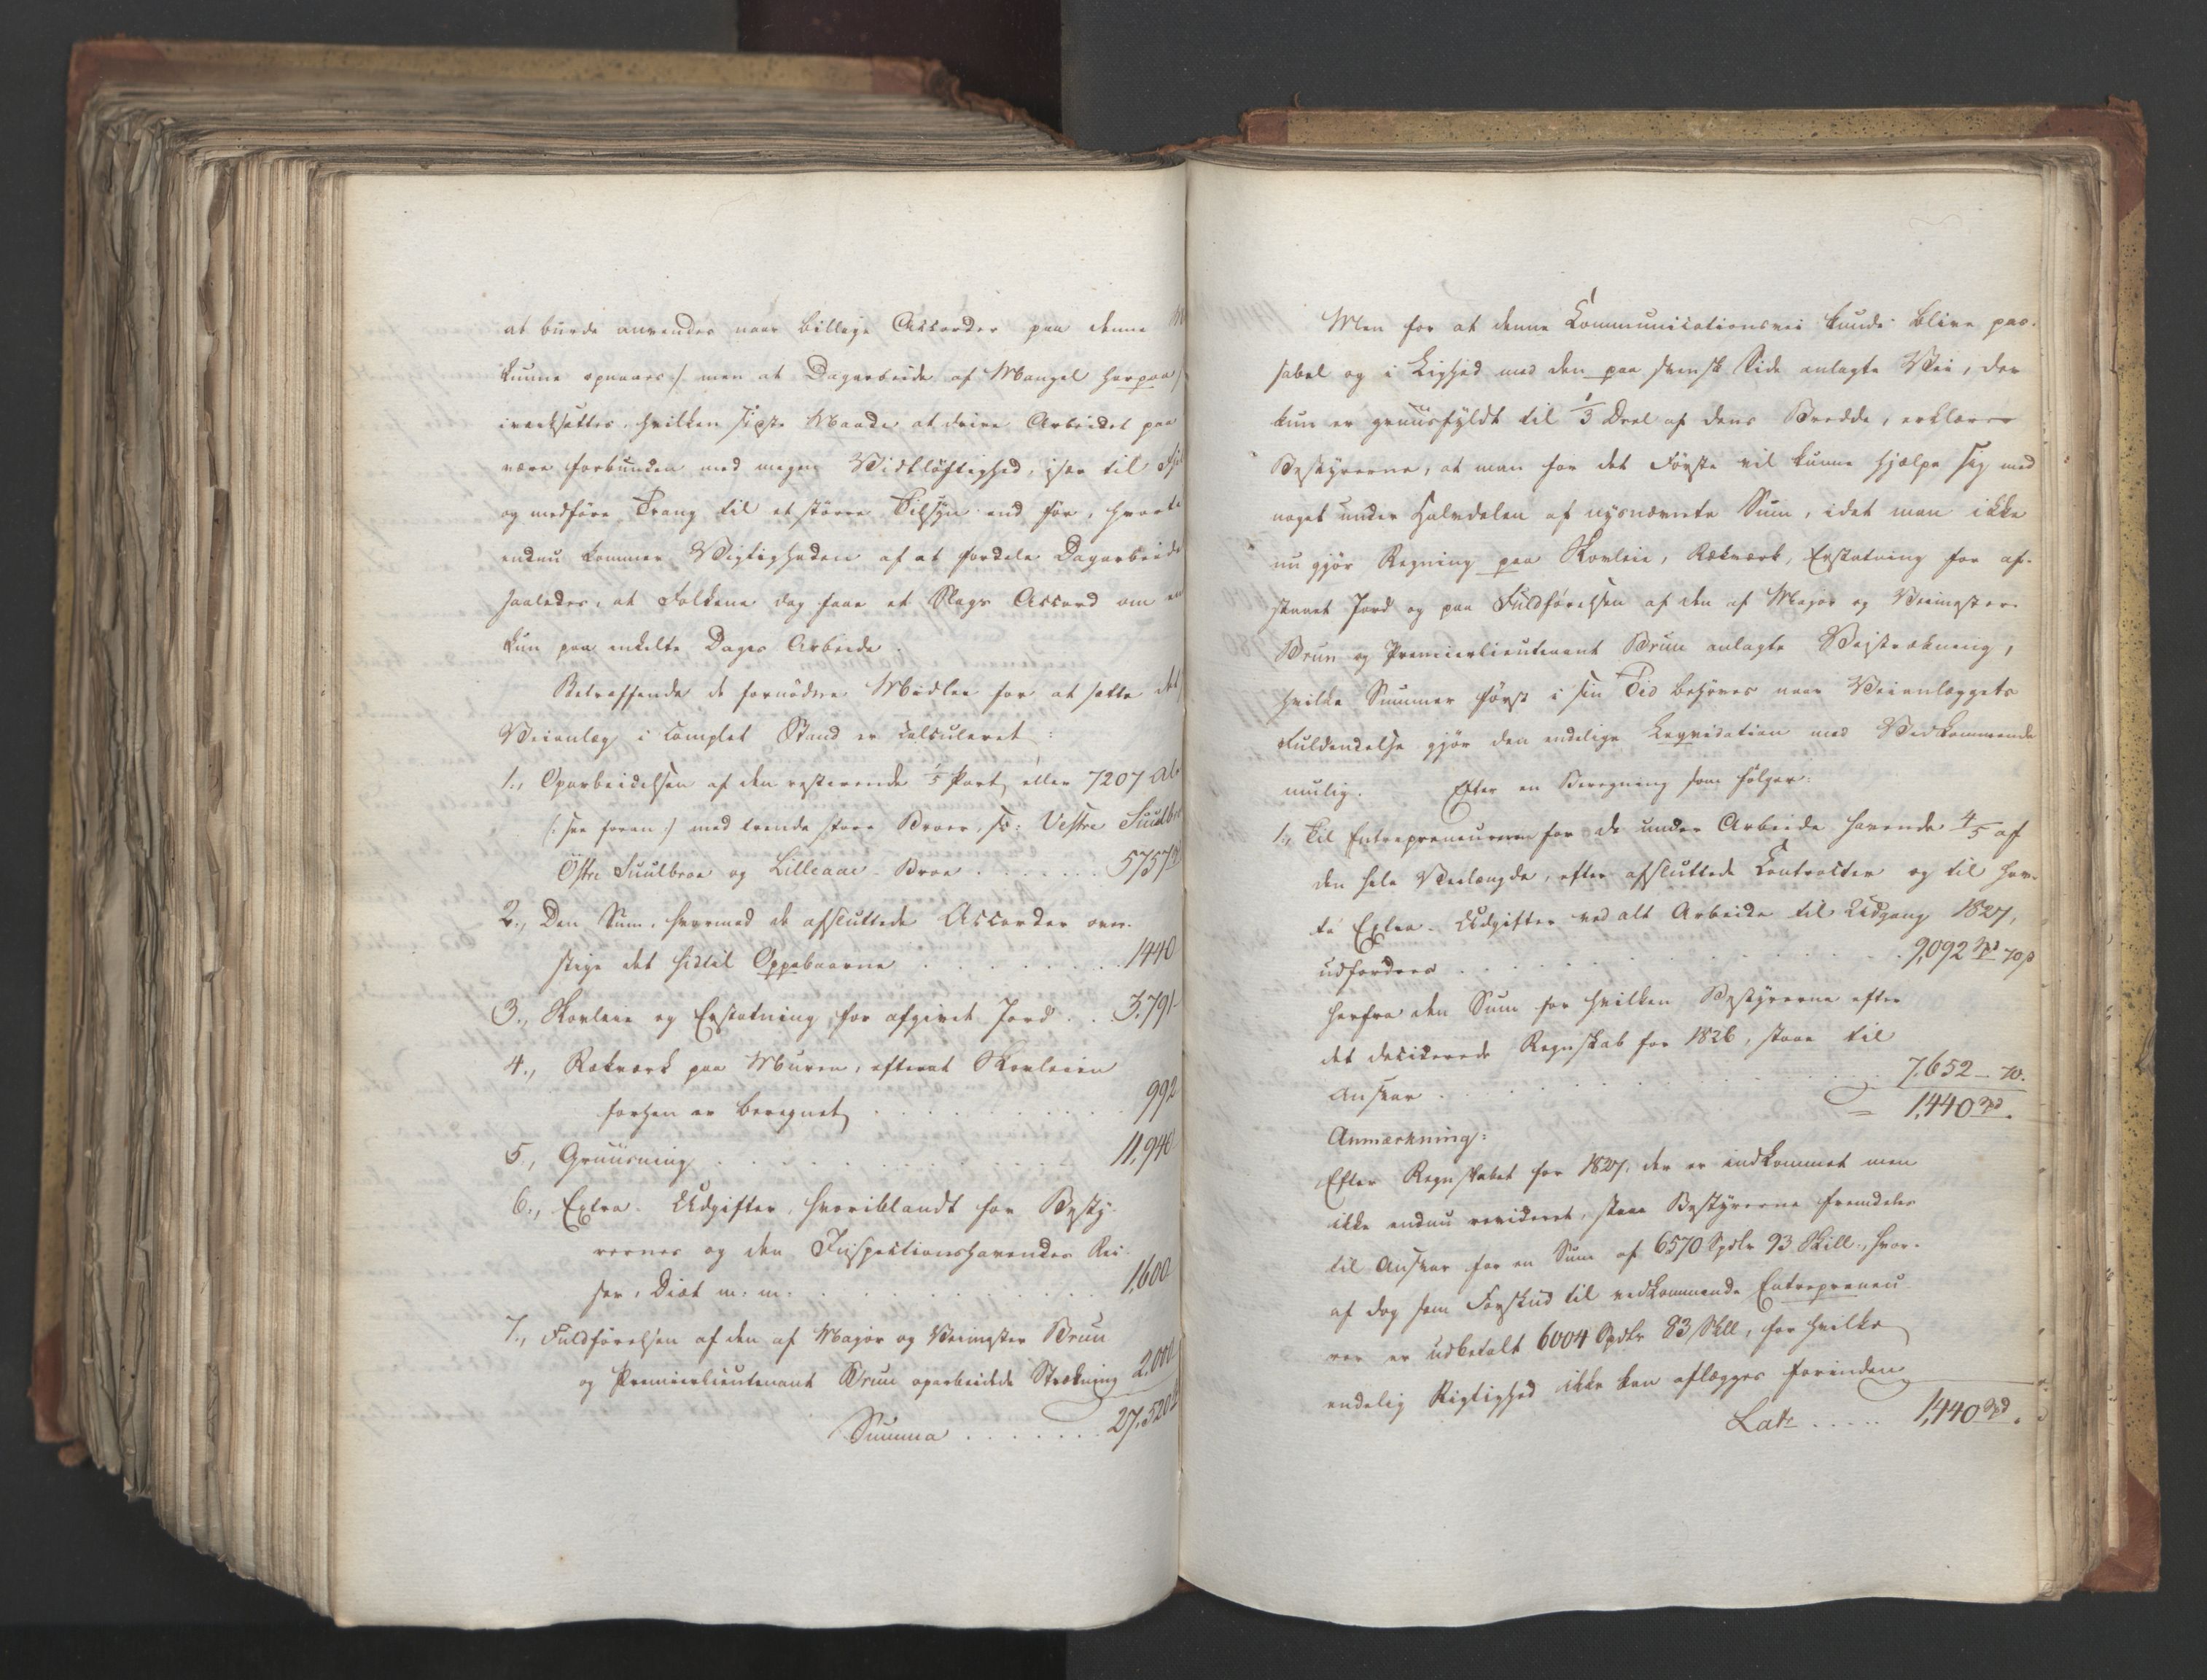 at burde anvendes naar billige Accorder paa denne
kunne opnaaes /: men at Dagarbeide af Mangel herpaa
iverksættes, hvilken sidste Maade at drive Arbeidet paa
være forbunden med megen Vidtløftighed, især til
og medføre Trang til et større Tilsyn end før, hvortil
endnu kommer Vigtigheden af at fordele Dagarbeide
saaledes, at Folkene dog faae et Slags Accord om end
kun paa enkelte Dages Arbeide.
Betræffende de fornødne Midler for at sætte det
Veianlæg i complet Stand er calculeret:
1., Oparbeidelsen af den resterende 1/5 Part, eller 7207 Al
(: see foran :) med trende store Broer, sc: Vestre Suulbroe
Østre Suulbroe og Lilleaae-Broe . . . . . . . 5757
2., Den Sum, hvormed de afsluttede Accorder over-
stige det hidtil Oppebaarne . . . . . . . 1440
3., Rovleie og Erstatning for afgivet Jord . . 3,791
4., Rækværk paa Muren, efterat Rovleien
forhen er beregnet . . . . . . . 992
5., Gruusning . . . . . . . 11,940
6., Extra-Udgifter, hvoriblandt for Besty-
rernes og den Inspectionshavendes Rei-
ser, Diæt m: m: . . . . . . . 1,600
7., Fuldførelsen af den af Major og Veimester Brun
og Premierlieutenant Brun oparbeidede Strækning 2,000
Summa . . . . . . . 27,520
Men for at denne Communicationsvei kunde blive pas-
sabel og i Lighed med den paa svensk Side anlagte Vei, der
kun er gruusfyldt til 1/3 Deel af dens Bredde, erklærer
Bestyrerne, at man for det Første vil kunne hjælpe sig med
noget under Halvdelen af nysnævnte Sum, idet man ikke
nu gjør Regning paa Rovleie, Rækværk, Erstatning for af-
staaet Jord og paa Fuldførelsen af den af Major og Veimester
Brun og Premierlieutenant Brun anlagte Veistrækning,
hvilke Summer først i sin Tid behøves naar Veianlæggets
Fuldendelse gjør den endelige Liqvidation med Vedkommende
mulig. Efter en Beregning som følger:
1., Til Entrepreneurerne for de under Arbeide havende 4/5 af
den hele Veilængde, efter afsluttede Contracter og til hav-
te Extra-Udgifter ved alt Arbeide til Udgang 1827,
udfordres . . . . . . . 9,092 Spd 70 ß
herfra den Sum for hvilken Bestyrerne efter
det deciderede Regnskab for 1826, staae til
Ansvar . . . . . . . 7,652 – 70.
= 1,440 Spd.
Anmærkning:
Efter Regnskabet for 1827, der er indkommet men
ikke endnu revideret, staae Bestyrerne fremdeles
til Ansvar for en Sum af 6570 Spdlr 93 Skill:, hvor-
af dog som Forskud til vedkommende Entrepreneu-
rer er udbetalt 6004 Spdlr 83 Skll, for hvilke
endelig Rigtighed ikke kan aflægges forinden
Lats . . . . . 1,440 Spd.